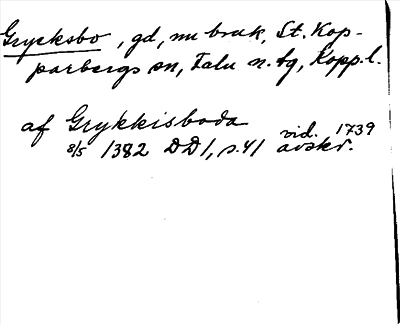 Grycksbo, gd, nu bruk, St. Kop-
parbergs sn, Falu n. tg, Kopp. l.
af Grykkisboda
8/5 1382 DD1, s. 41 vid. avskr. 1739